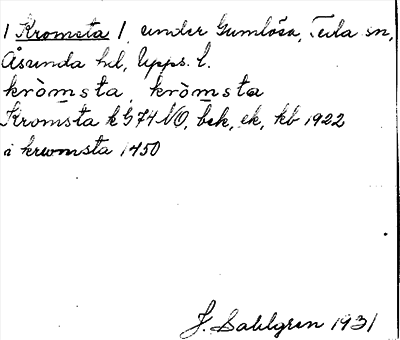 1 Kromsta 1, under Gumlösa, Tula sn,
Åsunda hd, Upps. l.
kròmsta, kròmsta
Kromsta k G 74 NO, bek, ek, kb 1922
i krwmsta 1450
J. Sahlgren 1931